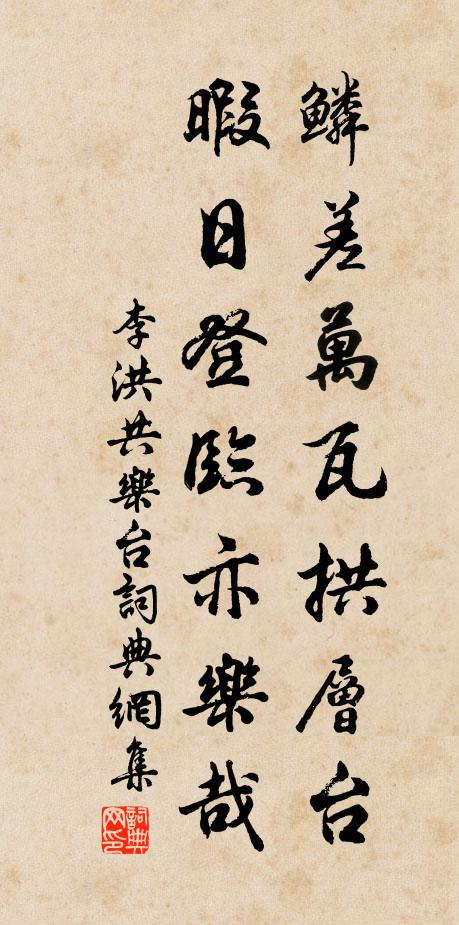 鱗差萬瓦拱層台
暇日登臨亦樂哉
李洪共樂台詞典網集
詞典网印